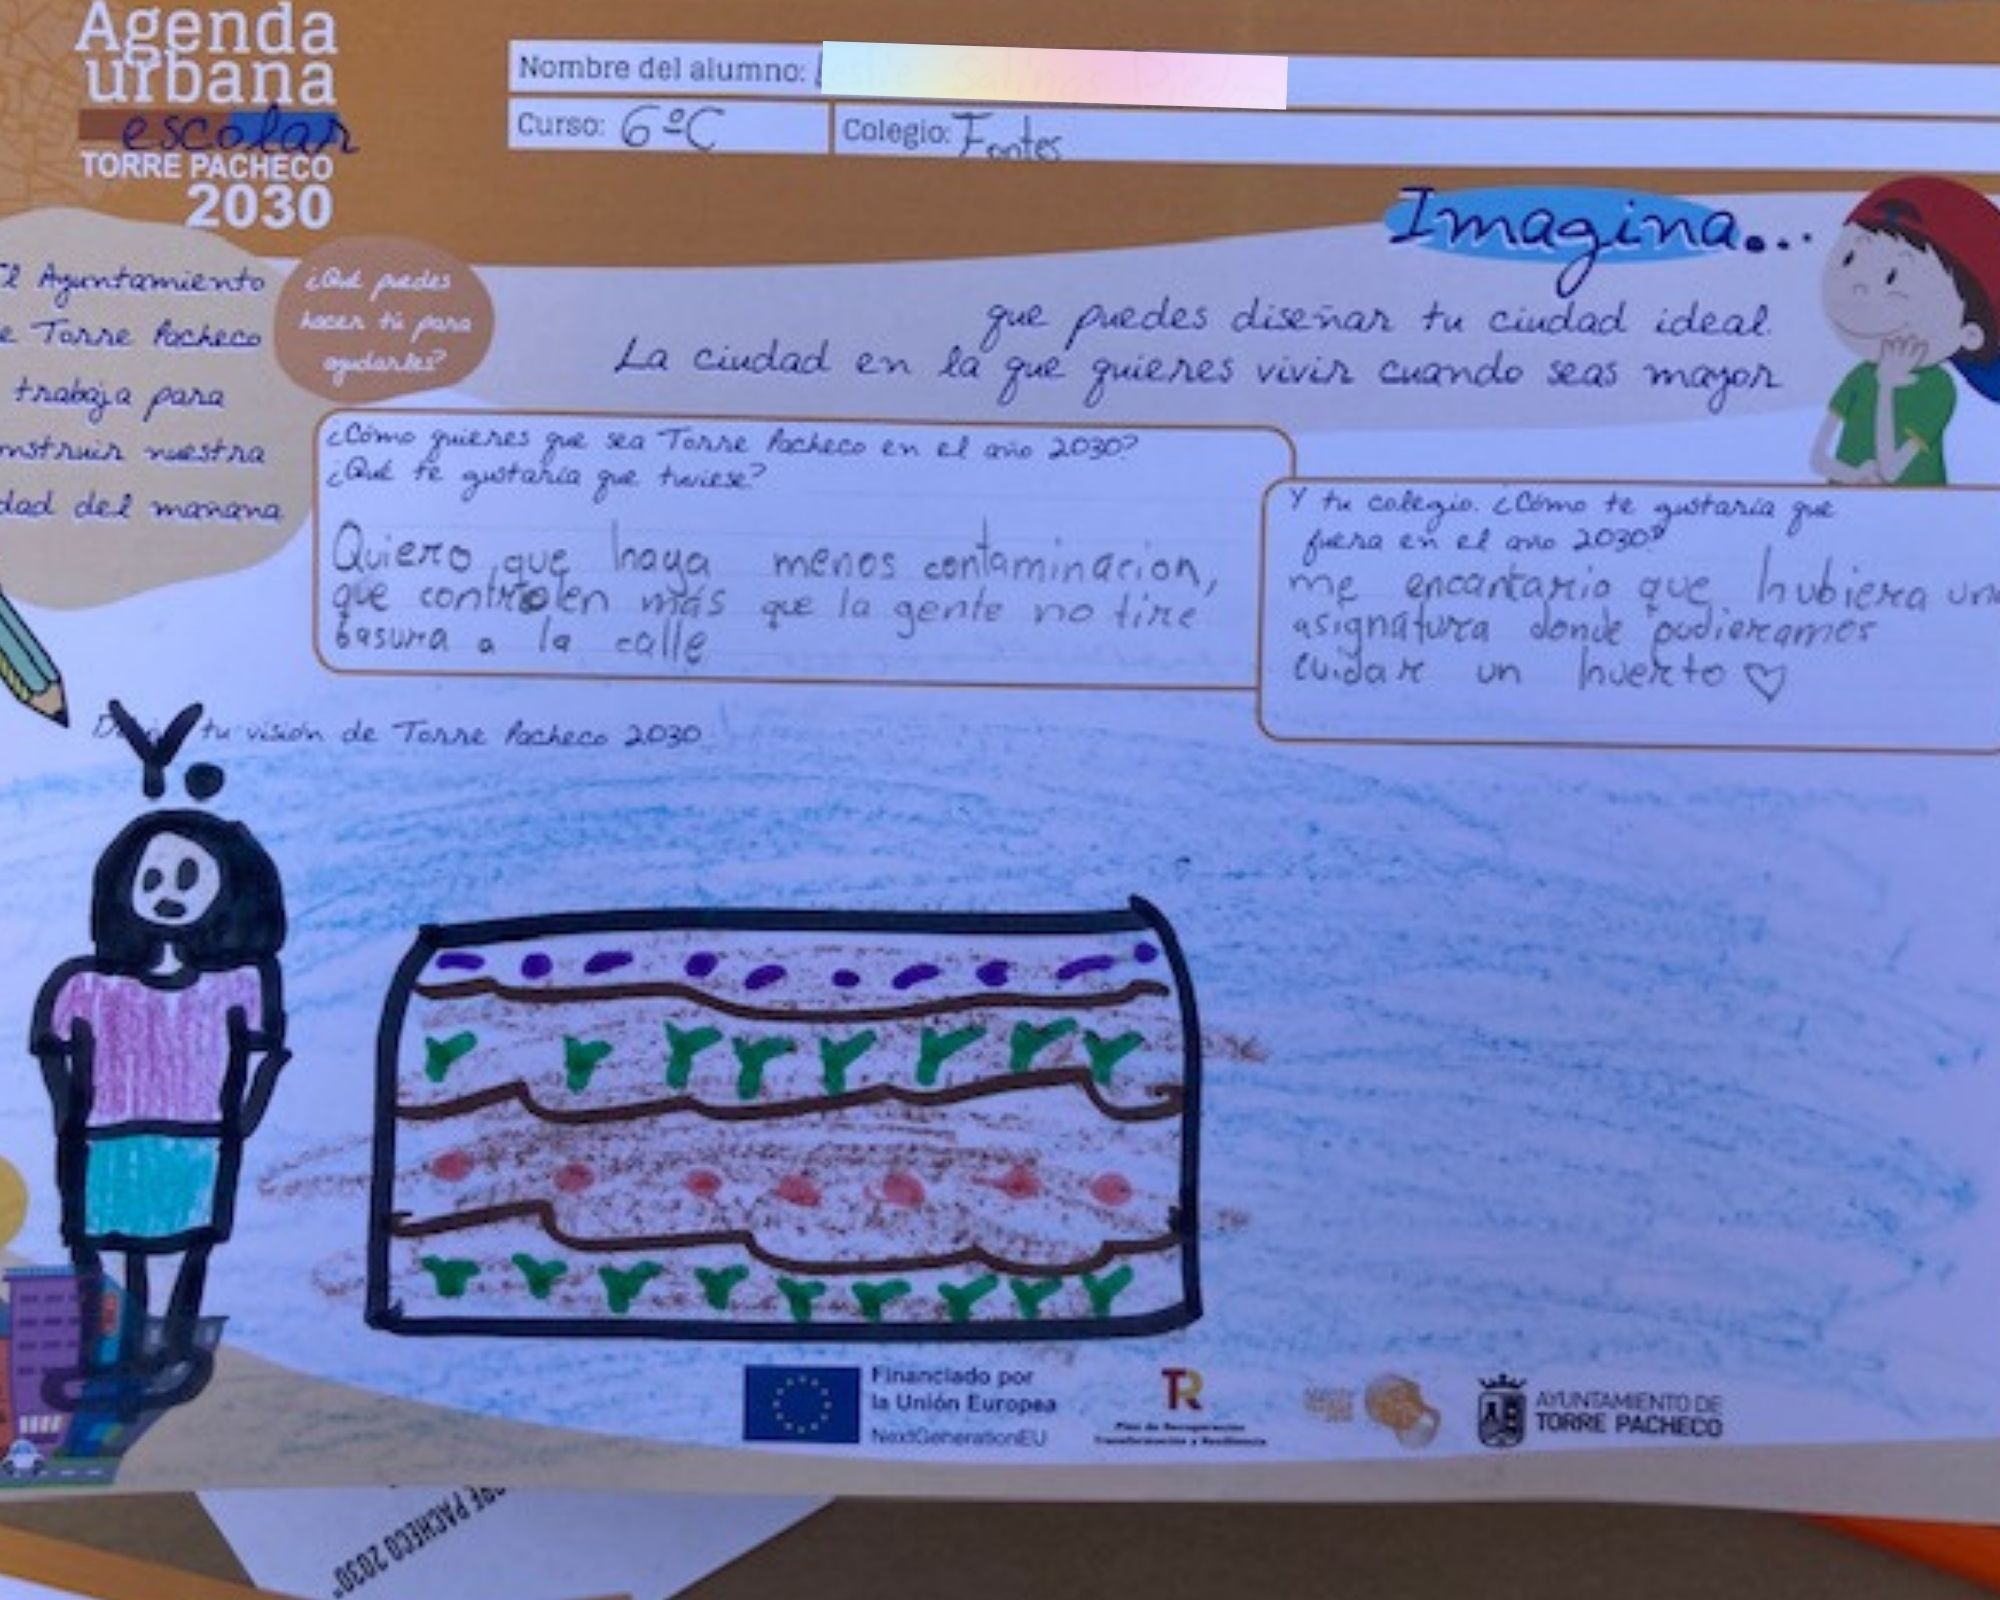 Agenda
urbana
escolar
TORRE PACHECO
2030
Nombre del alumno:
Curso: 6ºC
Colegio: Fontes
Imagina...
que puedes diseñar tu ciudad ideal.
La ciudad en la que quieres vivir cuando seas mayor
El Ayuntamiento
de Torre Pacheco
trabaja para
nstruir nuestra
dad del mañana
¿Qué puedes
hacer tú para
ayudarles?
¿Cómo quieres que sea Torre Pacheco en el año 2030?
¿Qué te gustaría que tuviese?
Quiero que haya menos contaminacion,
que controlen más que la gente no tire
basura a la calle
Y tu colegio. ¿Cómo te gustaría que
fuera en el año 2030?
me encantario que hubiera una
asignatura donde pudieramos
cuidar un huerto ♡
tu visión de Torre Pacheco 2030
Yo
Financiado por
la Unión Europea
NextGenerationEU
TR
Plan de Recuperación
Transformación y Resiliencia
AYUNTAMIENTO DE
TORRE PACHECO
RE PACHECO 2030"